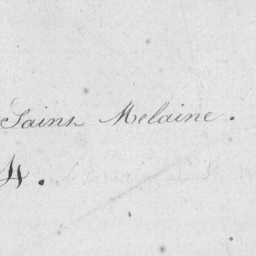 Saint Melaine.